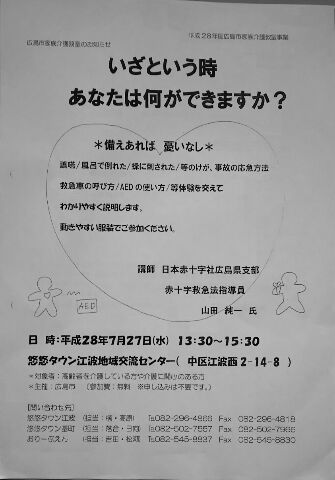 広島市家族介護教室のお知らせ
平成28年度広島市家族介護教室事業
いざという時
あなたは何ができますか？
＊備えあれば 憂いなし＊
誤嚥/風呂で倒れた/蜂に刺された/等のけが、事故の応急方法
救急車の呼び方/AEDの使い方/等体験を交えて
わかりやすく説明します。
動きやすい服装でご参加ください。
講師 日本赤十字社広島県支部
赤十字救急法指導員
山田 純一 氏
AED
日 時：平成28年7月27日(水) 13:30～15:30
悠悠タウン江波地域交流センター( 中区江波西2-14-8 )
＊対象者：高齢者を介護している方や介護に関心のある方
＊主催：広島市 〔参加費：無料 ※申し込みは不要です。〕
[問い合わせ先]
悠悠タウン江波 (担当：橘・高原) ℡082-296-4866 Fax 082-296-4818
悠悠タウン基町 (担当：落合・日向) ℡082-502-7557 Fax 082-502-7966
おりーぶえん (担当：吉田・松岡) ℡082-545-8837 Fax 082-545-8830